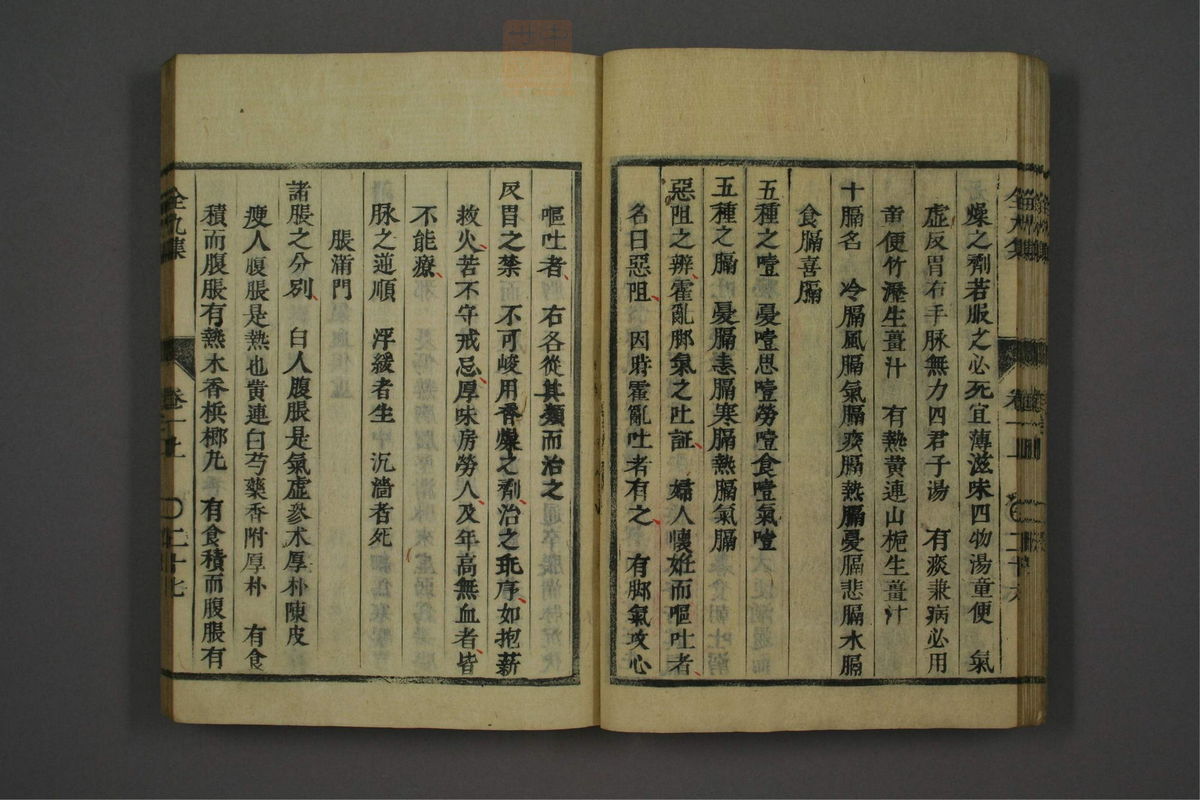 燥之劑若服之必死宜薄滋味四物湯童便　氣
虛反胃右手脉無力四君子湯　有痰兼病必用
童便竹瀝生薑汁　有熱黄連山梔生薑汁
十膈名　冷膈風膈氣膈痰膈熱膈憂膈悲膈水膈
食膈喜膈
五種之噎　憂噎思噎勞噎食噎氣噎
五種之膈　憂膈恚膈寒膈熱膈氣膈
惡阻之辨霍亂脚氣之吐証　婦人懐妊而嘔吐者
名曰惡阻　因時霍亂吐者有之　有脚氣攻心
卷一上　二十六
嘔吐者　右各從其類而治之
反胃之禁　不可峻用香燥之劑治之乖序如抱薪
救火苦不守戒忌厚味房勞人及年高無血者皆
不能療
脉之逆順　浮緩者生　沉濇者死
脹滿門
諸脹之分別　白人腹脹是氣虛參术厚朴陳皮
瘦人腹脹是熱也黄連白芍藥香附厚朴　有食
積而腹脹有熱木香檳榔丸　有食積而腹脹有
全九集　卷一上　二十七